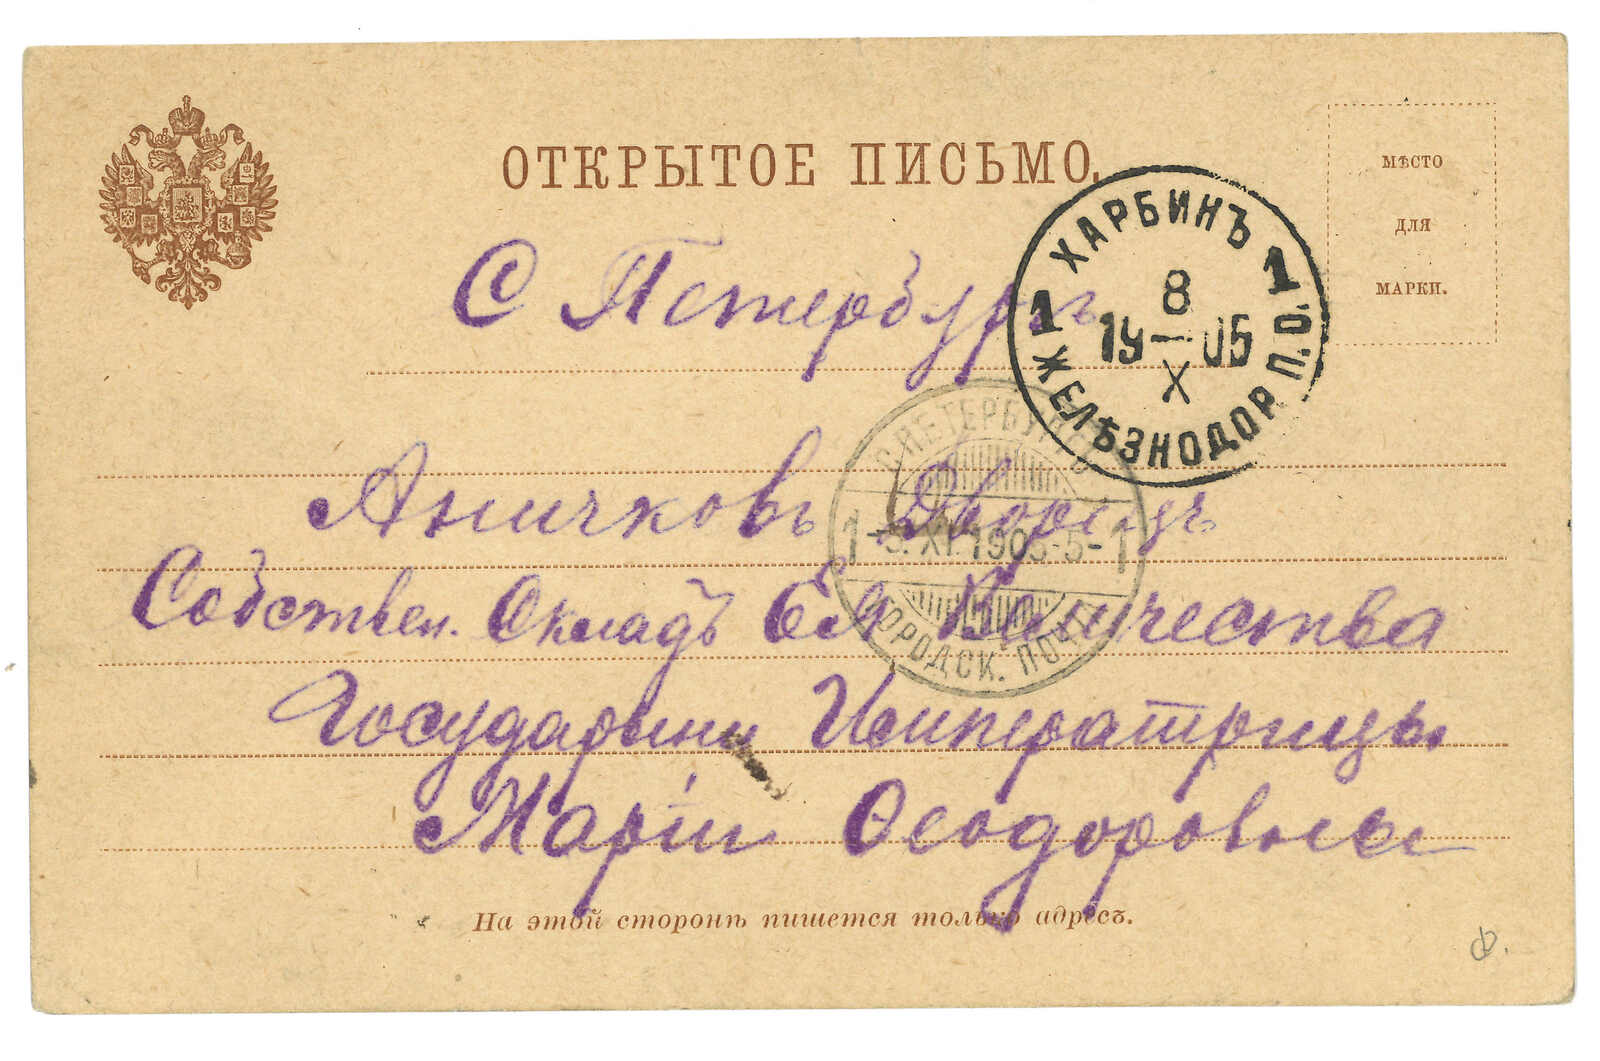 ОТКРЫТОЕ ПИСЬМО.
МѢСТО
ДЛЯ
МАРКИ.
ХАРБИНЪ
1 1
8
19—05
X
ЖЕЛѢЗНОДОР. П.О.
С Петербургъ
С.ПЕТЕРБУРГЪ
1 XI.1905-5- 1
ГОРОДСК. ПОЧТА
Аничковъ Дворецъ
Собствен. Складъ ЕЯ Величества
Государыни Императрицы
Маріи Ѳеодоровны
На этой сторонѣ пишется только адресъ.
Ф.